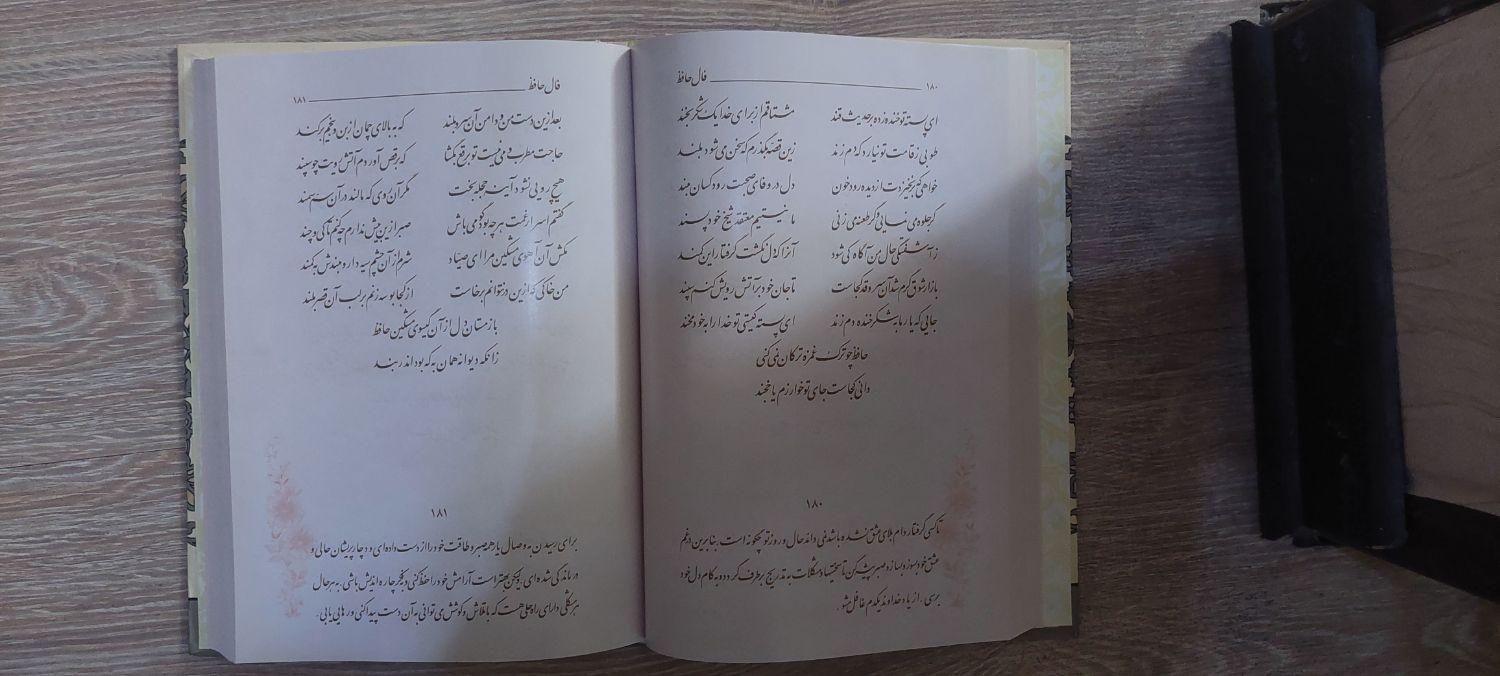 ۱۸۰ فال حافظ
ای پسته تو خنده زده بر حدیث قند مشتاقم از برای خدا یک شکر بخند
طوبی ز قامت تو نیارد که دم زند زین قصه بگذرم که سخن می شود بلند
خواهی که برنخیزدت از دیده رود خون دل در وفای صحبت رود کسان مبند
گر جلوه می نمایی و گر طعنه می زنی ما نیستیم معتقد شیخ خودپسند
ز آشفتگی حال من آگاه کی شود آنرا که دل نگشت گرفتار این کمند
بازار شوق گرم شد آن سرو قد کجاست تا جان خود بر آتش رویش کنم سپند
جایی که یار ما به شکرخنده دم زند ای پسته کیستی تو خدا را به خود مخند
حافظ چو ترک غمزه ترکان نمی کنی
دانی کجاست جای تو خوارزم یا خجند
۱۸۰
تا کسی گرفتار دام بلای عشق نشده باشد نمی داند حال و روز تو چگونه است. بنابراین در غم
عشق خود بسوز و بساز و صبر پیشه کن تا سختیها و مشکلات به تدریج برطرف گردد و به کام دل خود
برسی. از یاد خداوند یکدم غافل مشو.
فال حافظ ۱۸۱
بعد از این دست من و دامن آن سرو بلند که به بالای چمان از بن و بیخم برکند
حاجت مطرب و می نیست تو برقع بگشا که به رقص آوردم آتش رویت چو سپند
هیچ رویی نشود آینه حجله بخت مگر آن روی که مالند در آن سم سمند
گفتم اسرار غمت هر چه بود گو می باش صبر از این بیش ندارم چه کنم تا کی و چند
مکش آن آهوی مشکین مرا ای صیاد شرم از آن چشم سیه دار و مبندش به کمند
من خاکی که از این در نتوانم برخاست از کجا بوسه زنم بر لب آن قصر بلند
باز مستان دل از آن گیسوی مشکین حافظ
زانکه دیوانه همان به که بود اندر بند
۱۸۱
برای رسیدن به وصال یار همه صبر و طاقت خود را از دست داده ای و دچار پریشان حالی و
درماندگی شده ای. لیکن بهتر است آرامش خود را حفظ کنی و به فکر چاره اندیش باشی. به هر حال
هر مشکلی دارای راه حلی هست که با تلاش و کوشش می توانی به آن دست پیدا کنی و رهایی یابی.